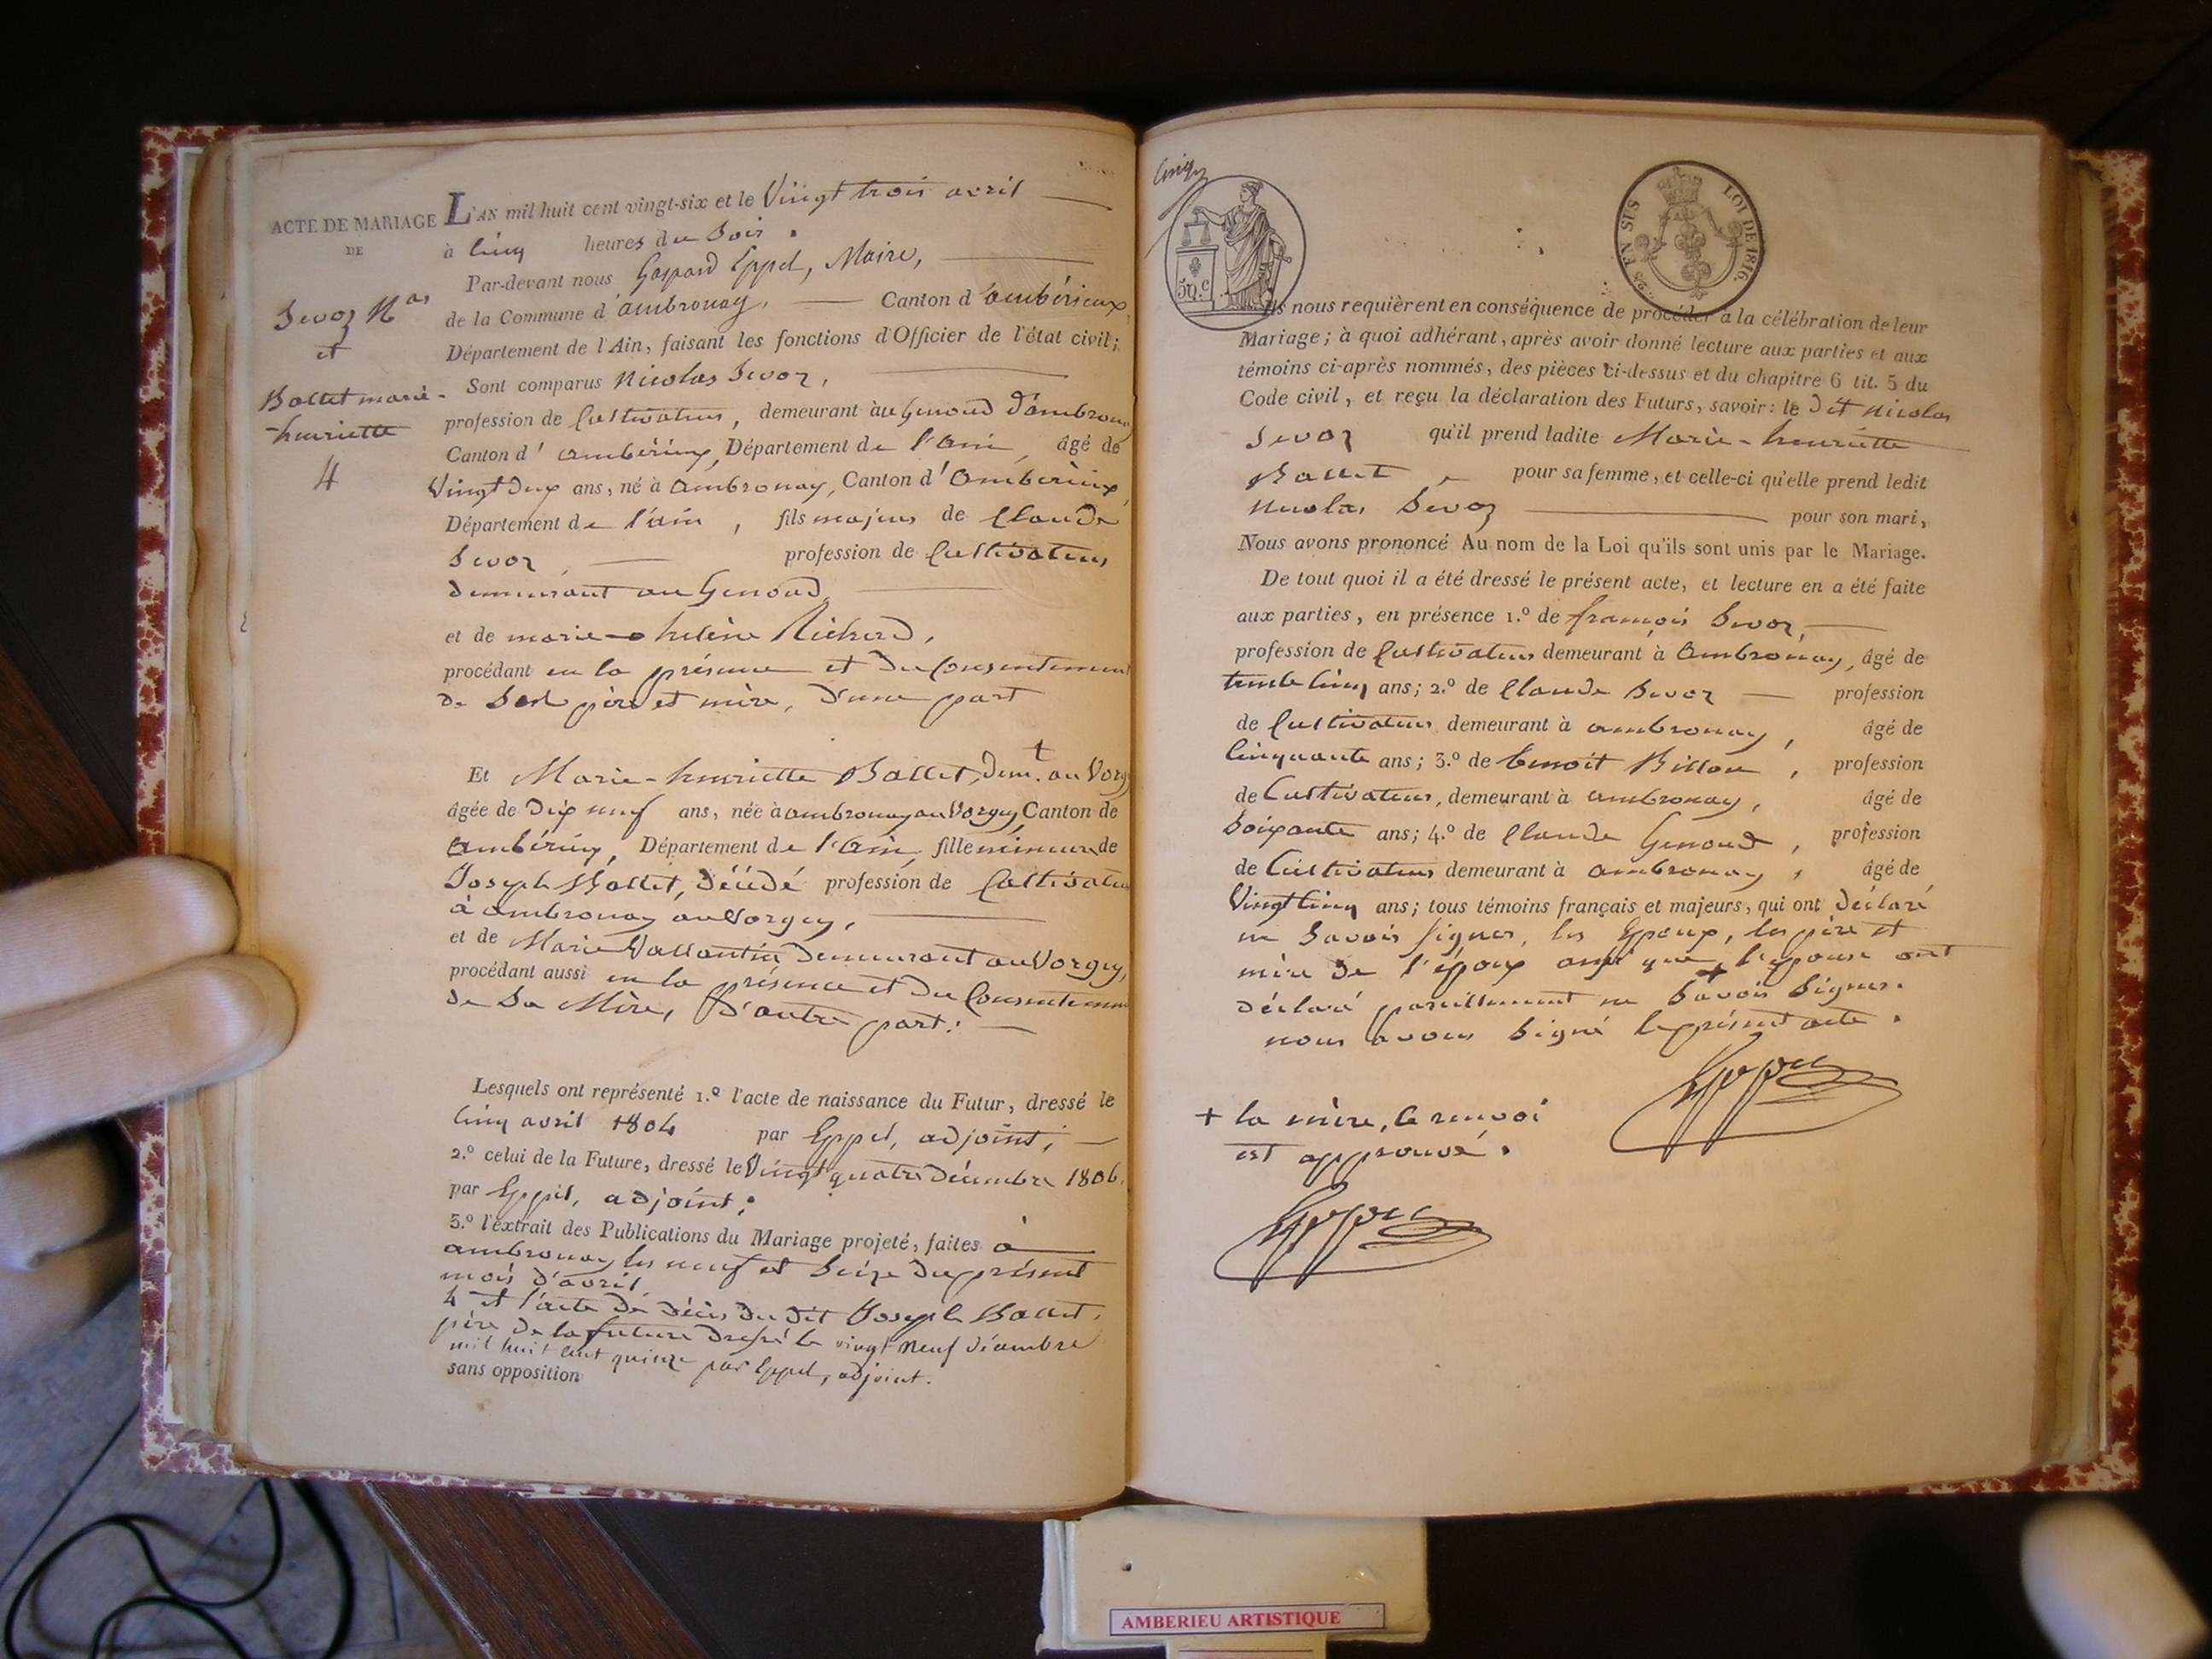 ACTE DE MARIAGE
DE
Sevoz Nas
et
Ballet marie-
henriette
4
L'AN mil huit cent vingt-six et le Vingt trois avril
à cinq heures du Soir.
Par-devant nous Gaspard Eppel, Maire,
de la Commune d'ambronay, Canton d'ambérieux,
Département de l'Ain, faisant les fonctions d'Officier de l'état civil;
Sont comparus Nicolas Sevoz,
profession de Cultivateur, demeurant au Genoud d'ambronay
Canton d'ambérieux, Département de l'ain, âgé de
Vingt deux ans, né à ambronay, Canton d'ambérieux,
Département de l'ain, fils majeur de Claude
Sevoz profession de Cultivateur
demeurant au Genoud
et de marie-helène Richerd,
procédant en la présence et du Consentement
de Ses père et mère, d'une part
Et Marie-henriette Ballet, demt. au Vorgey
âgée de dix neuf ans, née à ambronay au Vorgey, Canton de
ambérieux, Département de l'ain, fille mineure de
Joseph Ballet, décédé profession de Cultivateur
à ambronay au Vorgey,
et de Marie Vallantin demeurant au Vorgey,
procédant aussi en la présence et du Consentement
de Sa Mère, d'autre part;
Lesquels ont représenté 1.º l'acte de naissance du Futur, dressé le
cinq avril 1804 par Eppel, adjoint;
2.º celui de la Future, dressé le Vingt quatre décembre 1806,
par Eppel, adjoint;
3.º l'extrait des Publications du Mariage projeté, faites à
ambronay les neuf et Seize du présent
mois d'avril
4 et l'acte de décès du dit Joseph Ballet,
père de la future dressé le vingt neuf décembre
mil huit cent quinze par Eppel, adjoint.
sans opposition
5o.c
LOI DE 1816.
25 EN SUS
Ils nous requièrent en conséquence de procéder à la célébration de leur
Mariage; à quoi adhérant, après avoir donné lecture aux parties et aux
témoins ci-après nommés, des pièces ci-dessus et du chapitre 6 tit. 5 du
Code civil, et reçu la déclaration des Futurs, savoir: le dit Nicolas
Sevoz qu'il prend ladite Marie-henriette
Ballet, pour sa femme, et celle-ci qu'elle prend ledit
Nicolas Sevoz pour son mari,
Nous avons prononcé Au nom de la Loi qu'ils sont unis par le Mariage.
De tout quoi il a été dressé le présent acte, et lecture en a été faite
aux parties, en présence 1.º de françois Sevoz,
profession de Cultivateur demeurant à Ambronay, âgé de
trente cinq ans; 2.º de Claude Sevoz profession
de Cultivateur demeurant à ambronay, âgé de
Cinquante ans; 3.º de benoit Billon, profession
de Cultivateur, demeurant à ambronay, âgé de
Soixante ans; 4.º de Claude Genoud, profession
de Cultivateur demeurant à ambronay, âgé de
Vingt cinq ans; tous témoins français et majeurs, qui ont déclaré
ne Savoir Signer, les Epoux, les père et
mère de l'époux ainsi que + l'epouse ont
déclaré pareillement ne Savoir Signer.
nous avons Signé le présent acte.
Eppel
+ la mère, le renvoi
est approuvé.
Eppel
AMBERIEU ARTISTIQUE